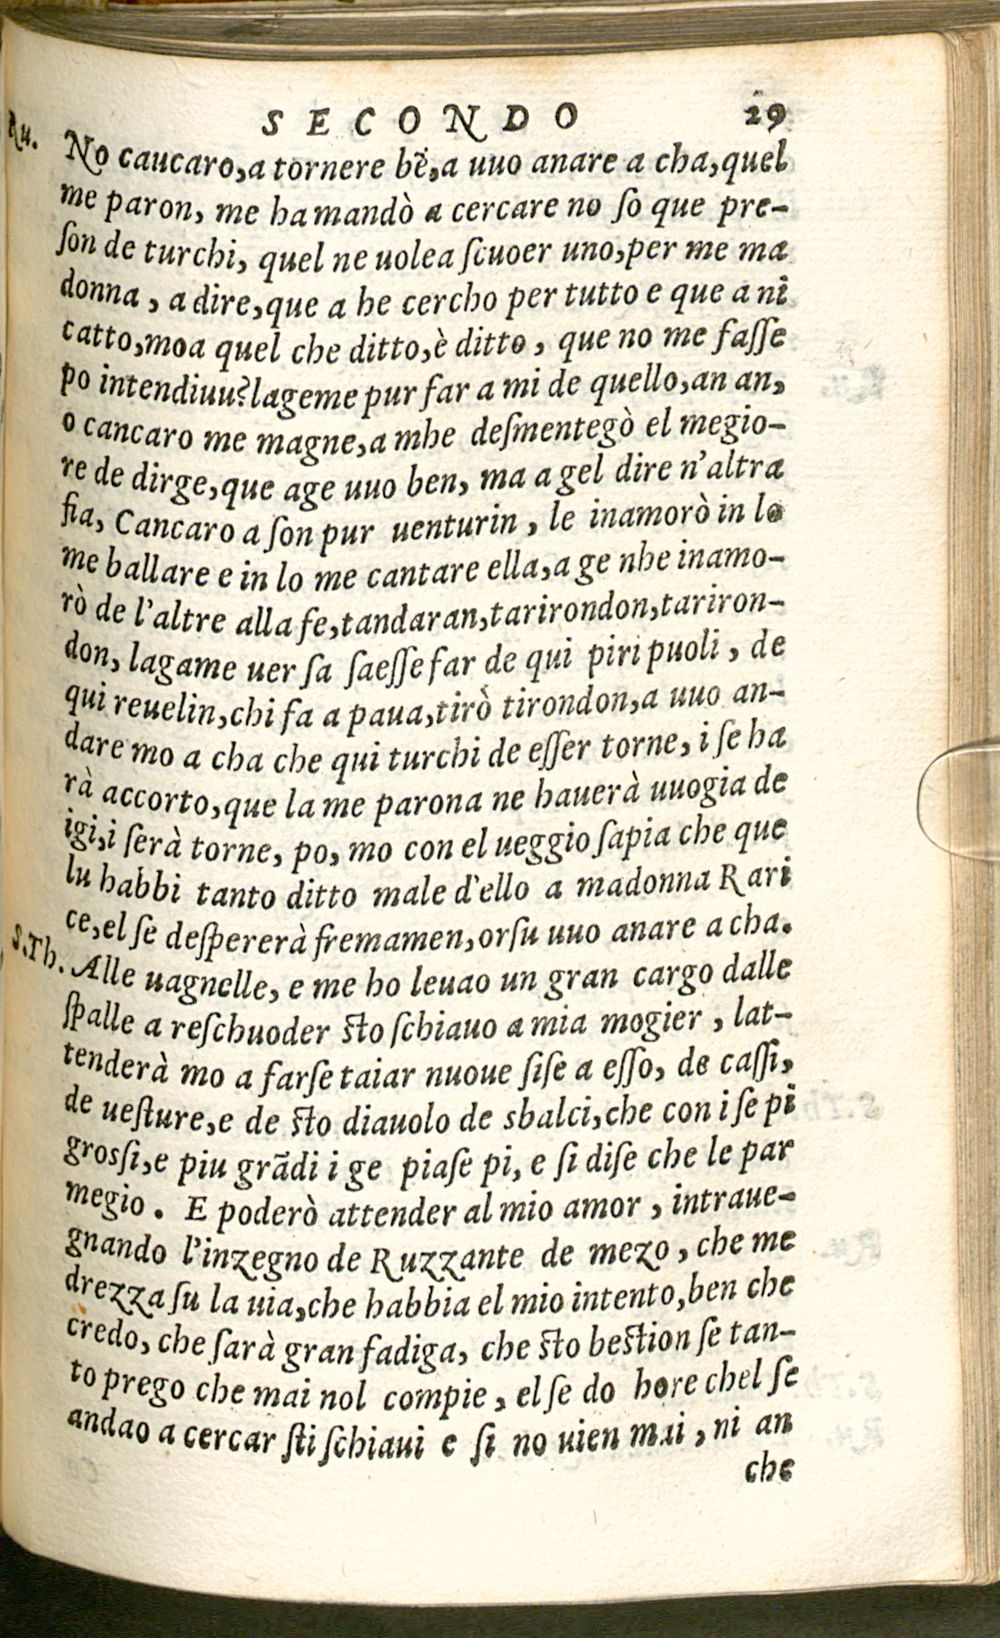 SECONDO 29
Ru. No caucaro,a tornere bẽ,a uuo anare a cha,quel
me paron, me ha mandò a cercare no so que pre-
son de turchi, quel ne uolea scuoer uno,per me ma
donna, a dire,que a he cercho per tutto e que a nĩ
catto,moa quel che ditto,è ditto, que no me fasse
po intendiuu?lageme pur far a mi de quello,an an,
o cancaro me magne,a mhe desmentegò el megio-
re de dirge,que age uuo ben, ma a gel dire n'altra
fia, Cancaro a son pur uenturin, le inamorò in lo
me ballare e in lo me cantare ella,a ge nhe inamo-
rò de l'altre alla fe,tandaran,tarirondon,tariron-
don, lagame uer sa saesse far de qui piri puoli, de
qui reuelin,chi fa a paua,tirò tirondon,a uuo an-
dare mo a cha che qui turchi de esser torne, i se ha
rà accorto,que la me parona ne hauerà uuogia de
igi,i serà torne, po, mo con el ueggio sapia che que
lu habbi tanto ditto male d'ello a madonna Rari
ce,el se despererà fremamen,orsu uuo anare a cha.
S.Th. Alle uagnelle, e me ho leuao un gran cargo dalle
spalle a reschuoder sto schiauo a mia mogier, lat-
tenderà mo a farse taiar nuoue sise a esso, de cassi,
de uesture,e de sto diauolo de sbalci,che con i se pĩ
grossi,e piu grãdi i ge piase pi, e si dise che le par
megio. E poderò attender al mio amor, intraue-
gnando l'inzegno de Ruzzante de mezo, che me
drezza su la uia,che habbia el mio intento,ben che
credo, che sarà gran fadiga, che sto bestion se tan-
to prego che mai nol compie, el se do hore chel se
andao a cercar sti schiaui e si no uien mai, ni an
che